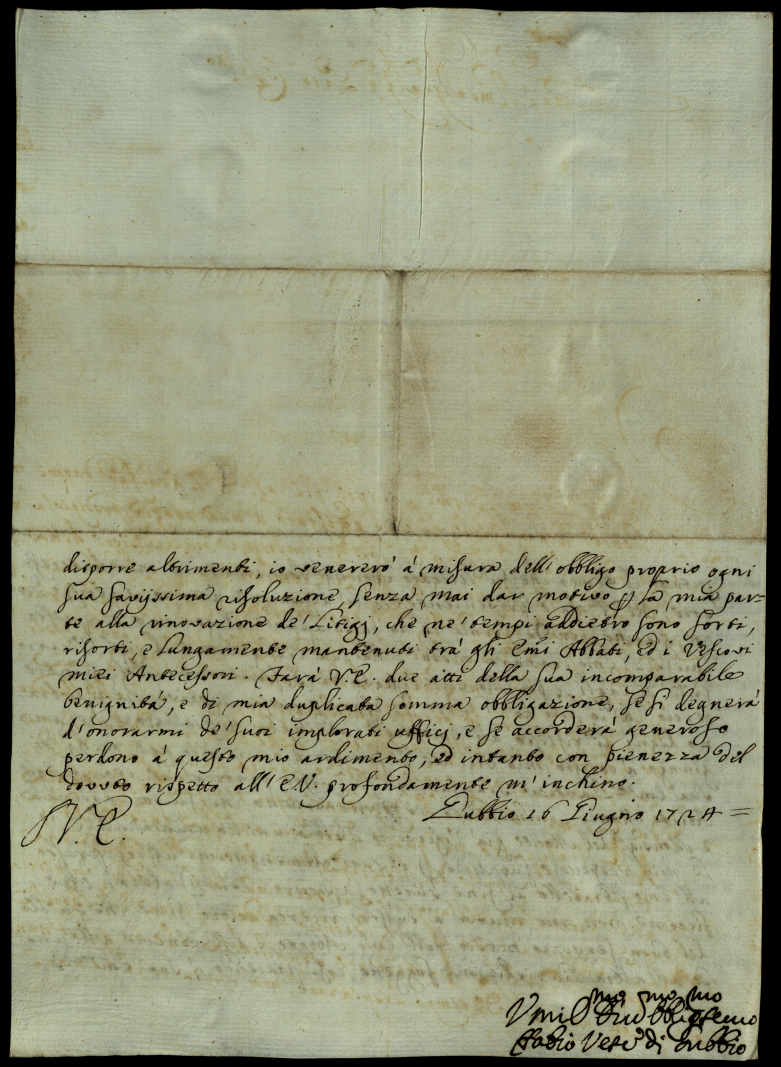 disporre altrimenti, io venererò á misura dell'obbligo proprio ogni
sua savijssima risoluzione, senza mai dar motivo p la mia par=
te alla rinovazione de' Litigj, che ne' tempi addietro sono sorti,
risorti, e lungamente mantenuti trà gli Emi Abbati, ed i Vescovi
miei Antecessori. Farà V.E. due atti della sua incomparabile
benignità, e di mia duplicata somma obbligazione, se si degnerà
d'onorarmi de' suoi implorati ufficj, e se accorderà generoso
perdono á questo mio ardimento, ed intanto con pienezza del
dovuto rispetto all'E.V. profondamente m'inchino.
Gubbio 16 Giugno 1724 =
V.E.
Umil mo Obbligmo Servo
Fabio Vesc.o di Gubbio